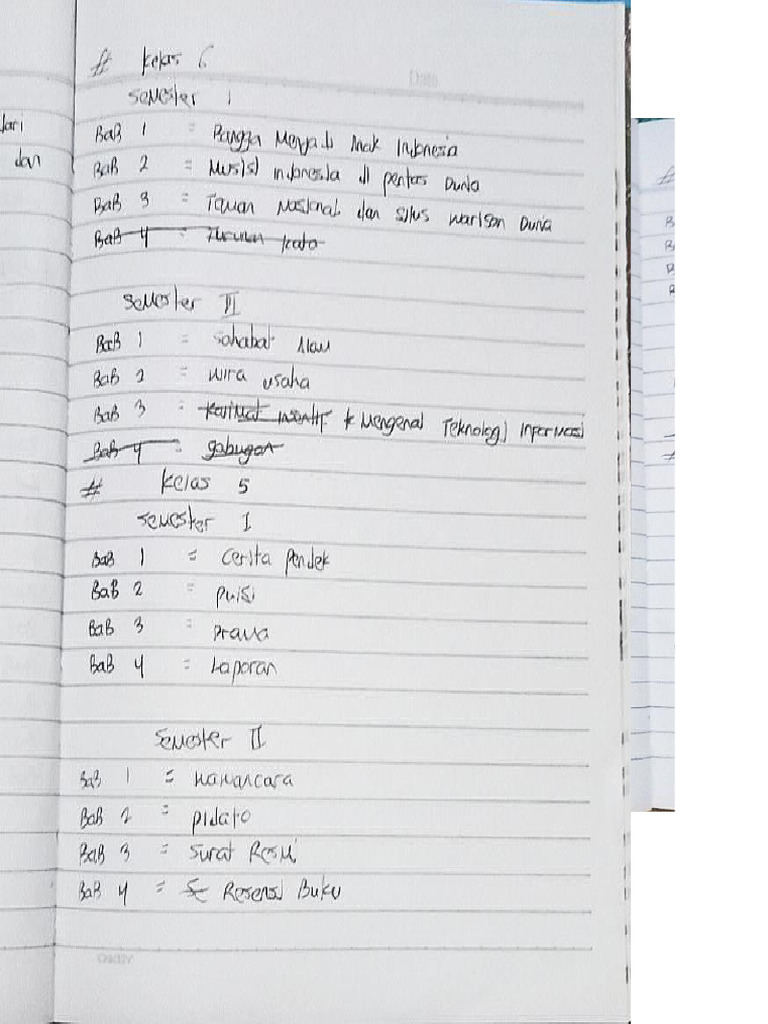 lari
dan
# Kelas 6
Date
Semester 1
BaB 1 = Bangga Menjadi Anak Indonesia
BaB 2 = Musisi indonesia di pentas Dunia
BaB 3 = Taman Nasional dan situs warisan Dunia
BaB 4 = Turunan kata
Semester II
BaB 1 = Sahabat Alam
BaB 2 = Wira usaha
BaB 3 = Kalimat inentif * Mengenal Teknologi Informasi
BaB 4 = gabungan
# Kelas 5
Semester I
BaB 1 = Cerita Pendek
BaB 2 = puisi
BaB 3 = Drama
BaB 4 = Laporan
Semester II
BaB 1 = Wawancara
BaB 2 = pidato
BaB 3 = Surat Resmi
BaB 4 = Resensi Buku